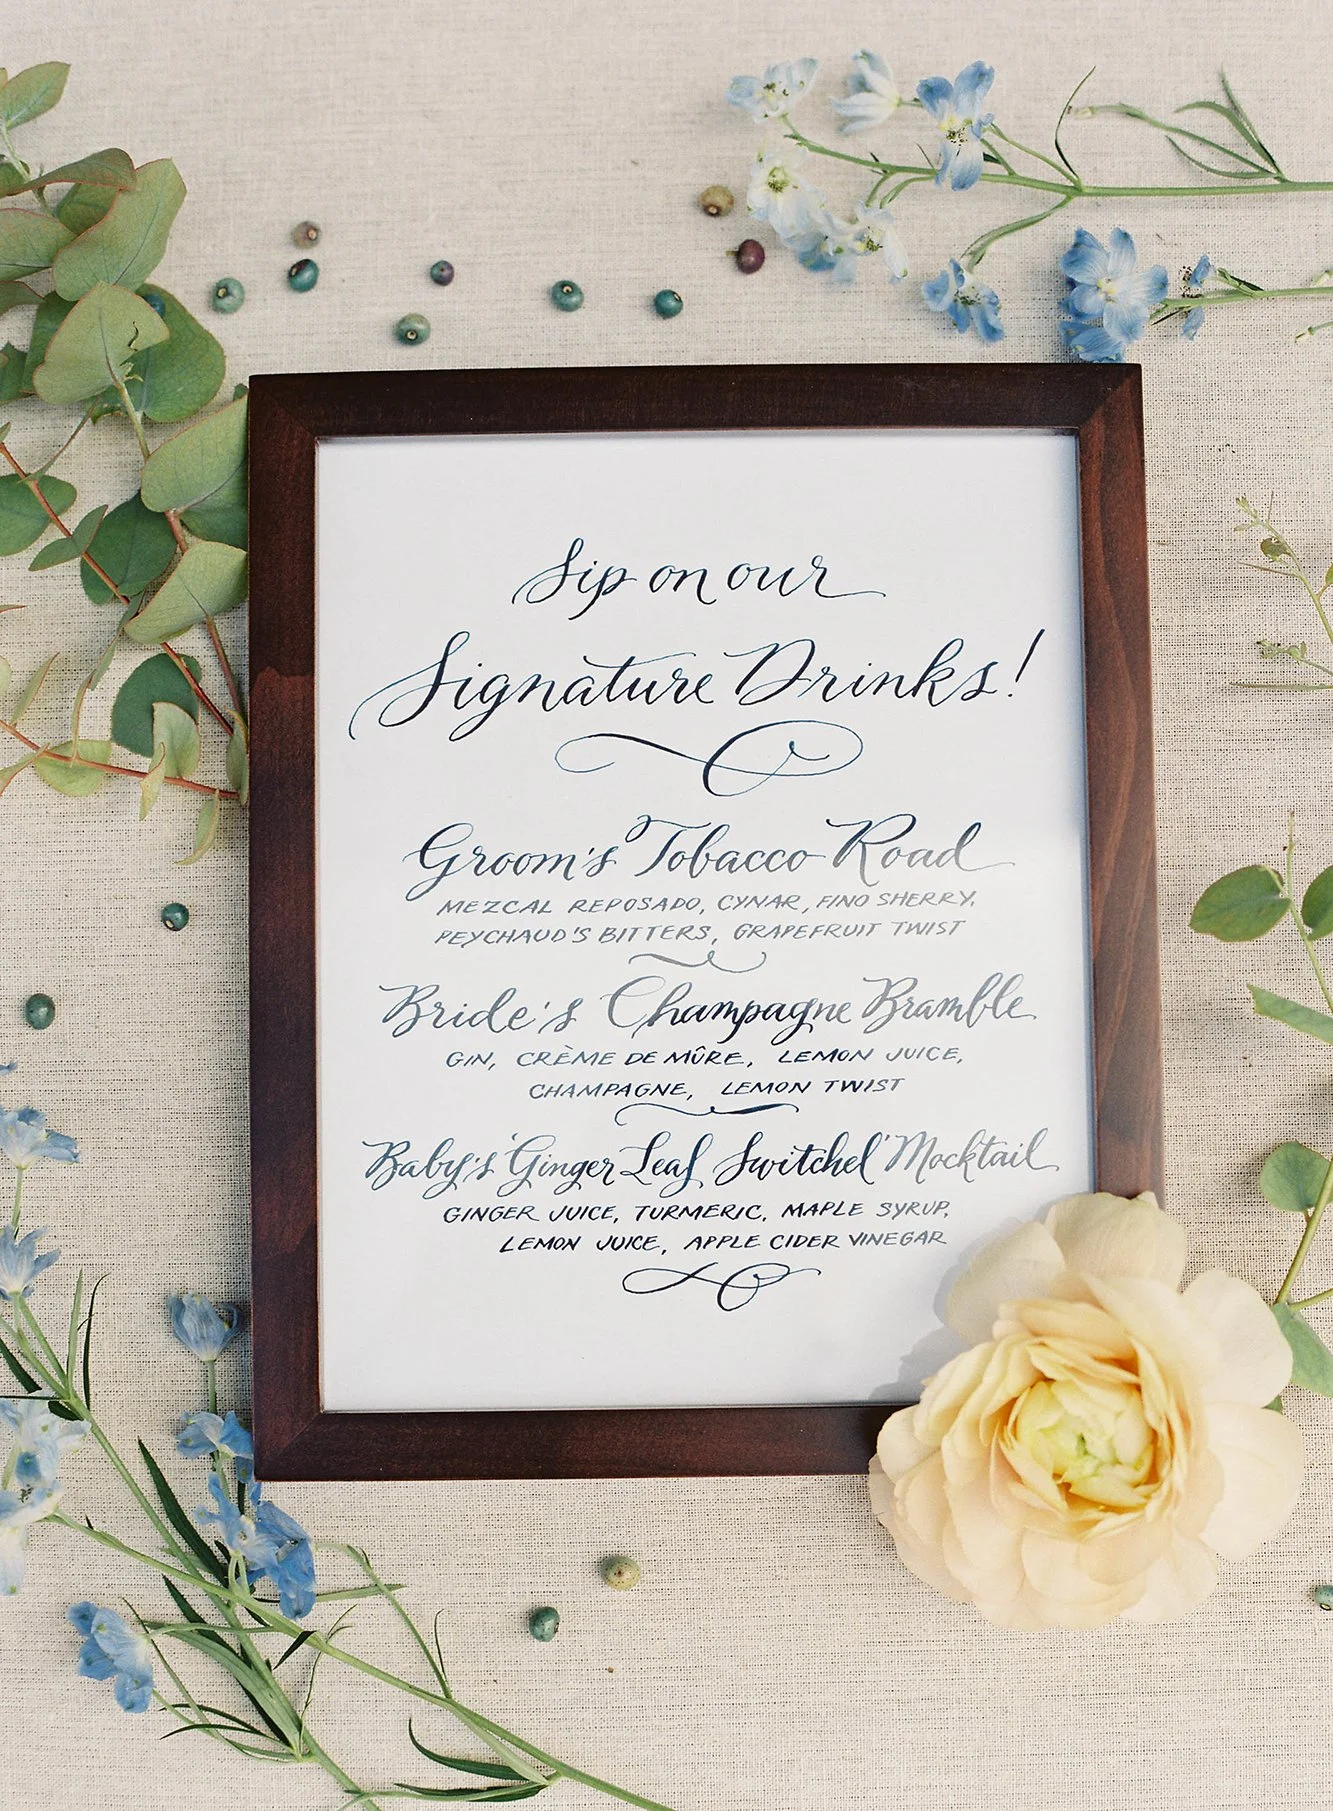 Sip on our
Signature Drinks!
Groom's Tobacco Road
MEZCAL REPOSADO, CYNAR, FINO SHERRY,
PEYCHAUD'S BITTERS, GRAPEFRUIT TWIST
Bride's Champagne Bramble
GIN, CRÈME DE MÛRE, LEMON JUICE,
CHAMPAGNE, LEMON TWIST
Baby's 'Ginger Leaf Switchel' Mocktail
GINGER JUICE, TURMERIC, MAPLE SYRUP,
LEMON JUICE, APPLE CIDER VINEGAR